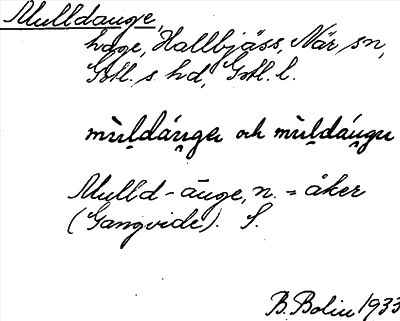 Mulldauge,
hage, Hallbjäss, När sn,
Gotl. s. hd, Gotl. l.
mùḷdáu̯gei och mùḷdáu̯gu
Mulld-äuge, n. = åker
(Gangvide). S.
B. Bolin 1933